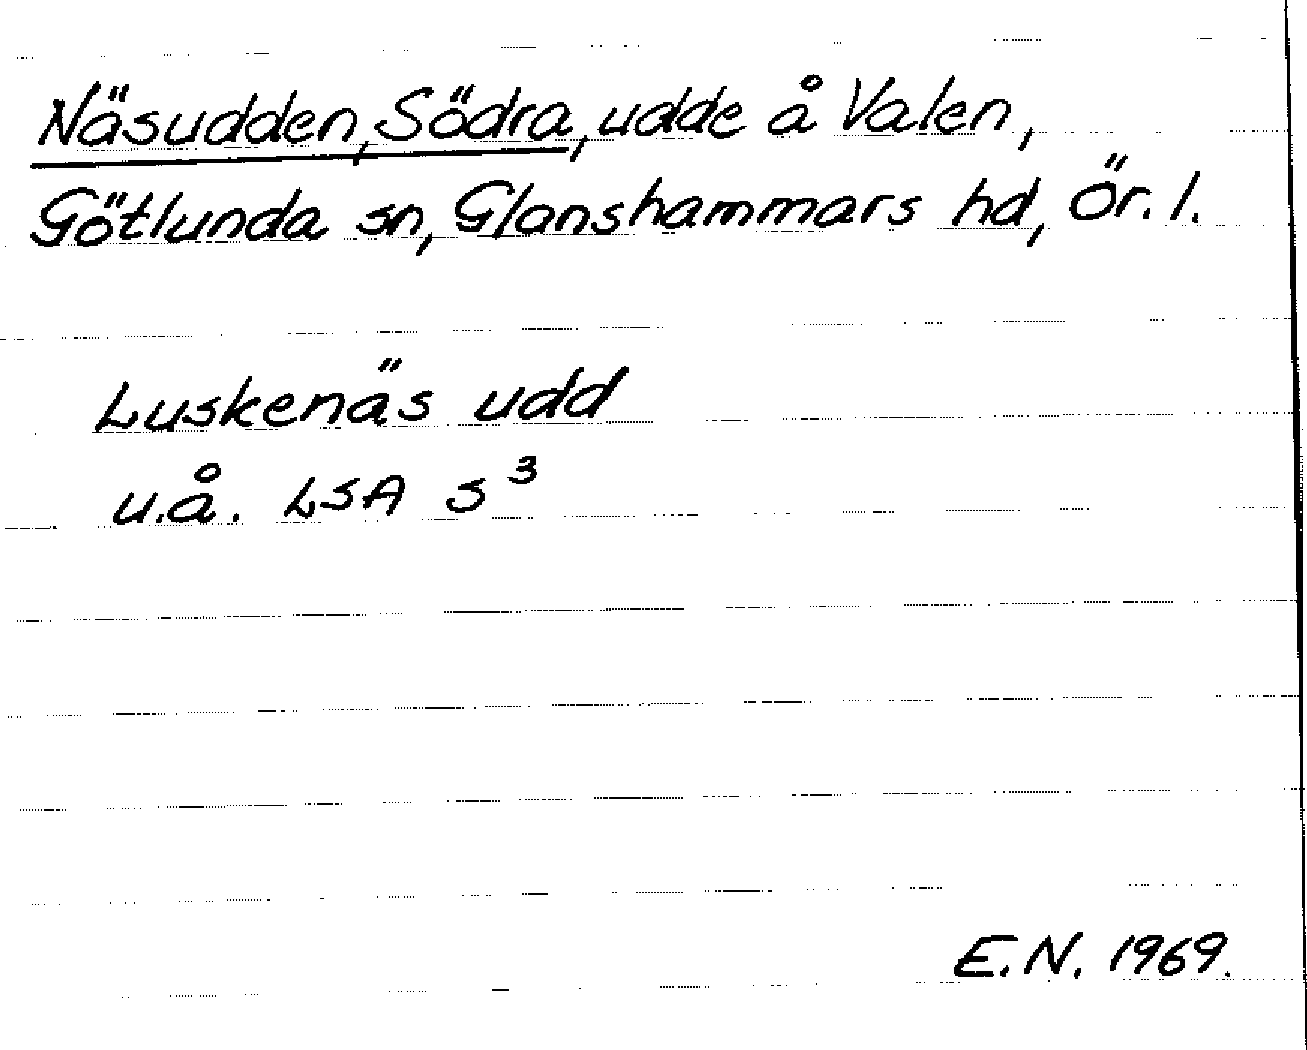 Näsudden, Södra, udde å Valen,
Götlunda sn, Glanshammars hd, Ör. l.
Luskenäs udd
u.å. LSA S³
E.N. 1969.